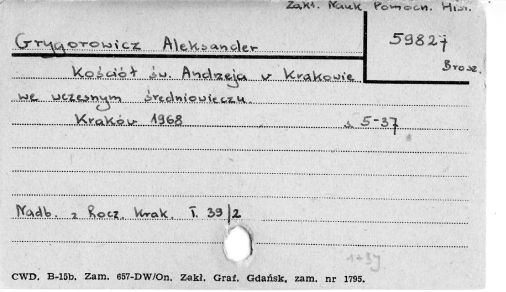 Zakł. Nauk Pomocn. Hist.
Grygorowicz Aleksander
59827
Brosz.
Kościół św. Andrzeja v Krakowie
we wczesnym średniowieczu.
Kraków 1968 s. 5-37
Nadb. z Rocz. Krak. T. 39/2
CWD. B-15b. Zam. 657-DW/On. Zakł. Graf. Gdańsk, zam. nr 1795.